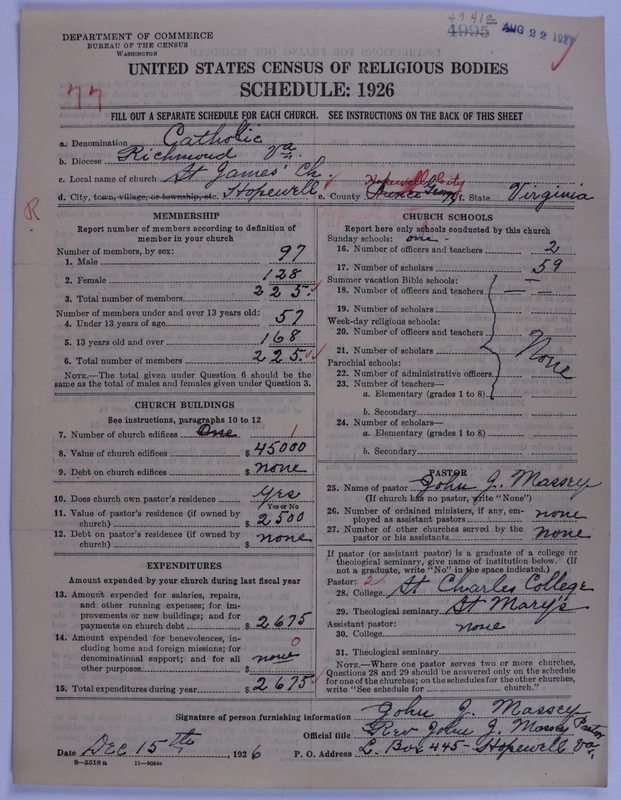 4941a
4995 AUG 22 1927
DEPARTMENT OF COMMERCE
BUREAU OF THE CENSUS
WASHINGTON
UNITED STATES CENSUS OF RELIGIOUS BODIES
SCHEDULE: 1926
77
FILL OUT A SEPARATE SCHEDULE FOR EACH CHURCH. SEE INSTRUCTIONS ON THE BACK OF THIS SHEET
a. Denomination Catholic
b. Diocese Richmond Va.
c. Local name of church St James' Ch.
d. City, town, village, or township, etc. Hopewell e. County Prince Georg Hopewell City f. State Virginia
R
MEMBERSHIP
Report number of members according to definition of
member in your church
Number of members, by sex:
1. Male 97
2. Female 128
3. Total number of members 225
Number of members under and over 13 years old:
4. Under 13 years of age 57
5. 13 years old and over 168
6. Total number of members 225
NOTE.—The total given under Question 6 should be the
same as the total of males and females given under Question 3.
CHURCH BUILDINGS
See instructions, paragraphs 10 to 12
7. Number of church edifices One 1
8. Value of church edifices $ 45000
9. Debt on church edifices $ none
10. Does church own pastor's residence Yes
Yes or No
11. Value of pastor's residence (if owned by
church) $ 2500
12. Debt on pastor's residence (if owned by
church) $ none
EXPENDITURES
Amount expended by your church during last fiscal year
13. Amount expended for salaries, repairs,
and other running expenses; for im-
provements or new buildings; and for
payments on church debt $ 2675
14. Amount expended for benevolences, in-
cluding home and foreign missions; for
denominational support; and for all
other purposes $ none 0
15. Total expenditures during year $ 2675
CHURCH SCHOOLS
Report here only schools conducted by this church
Sunday schools: one -
16. Number of officers and teachers 2
17. Number of scholars 59
Summer vacation Bible schools:
18. Number of officers and teachers
19. Number of scholars
Week-day religious schools:
20. Number of officers and teachers
21. Number of scholars None
Parochial schools:
22. Number of administrative officers
23. Number of teachers—
a. Elementary (grades 1 to 8)
b. Secondary
24. Number of scholars—
a. Elementary (grades 1 to 8)
b. Secondary
PASTOR
25. Name of pastor John J. Massey
(If church has no pastor, write "None")
26. Number of ordained ministers, if any, em-
ployed as assistant pastors none
27. Number of other churches served by the
pastor or his assistants none
If pastor (or assistant pastor) is a graduate of a college or
theological seminary, give name of institution below. (If
not a graduate, write "No" in the space indicated.)
Pastor: 2
28. College St Charles College
29. Theological seminary St Mary's
Assistant pastor: none
30. College
31. Theological seminary
NOTE.—Where one pastor serves two or more churches,
Questions 28 and 29 should be answered only on the schedule
for one of the churches; on the schedules for the other churches,
write "See schedule for church."
Signature of person furnishing information John J. Massey
Official title Rev John J. Massey Pastor
Date Dec 15th, 1926 P. O. Address L. Box 445- Hopewell Va.
8—5518a 11—9084